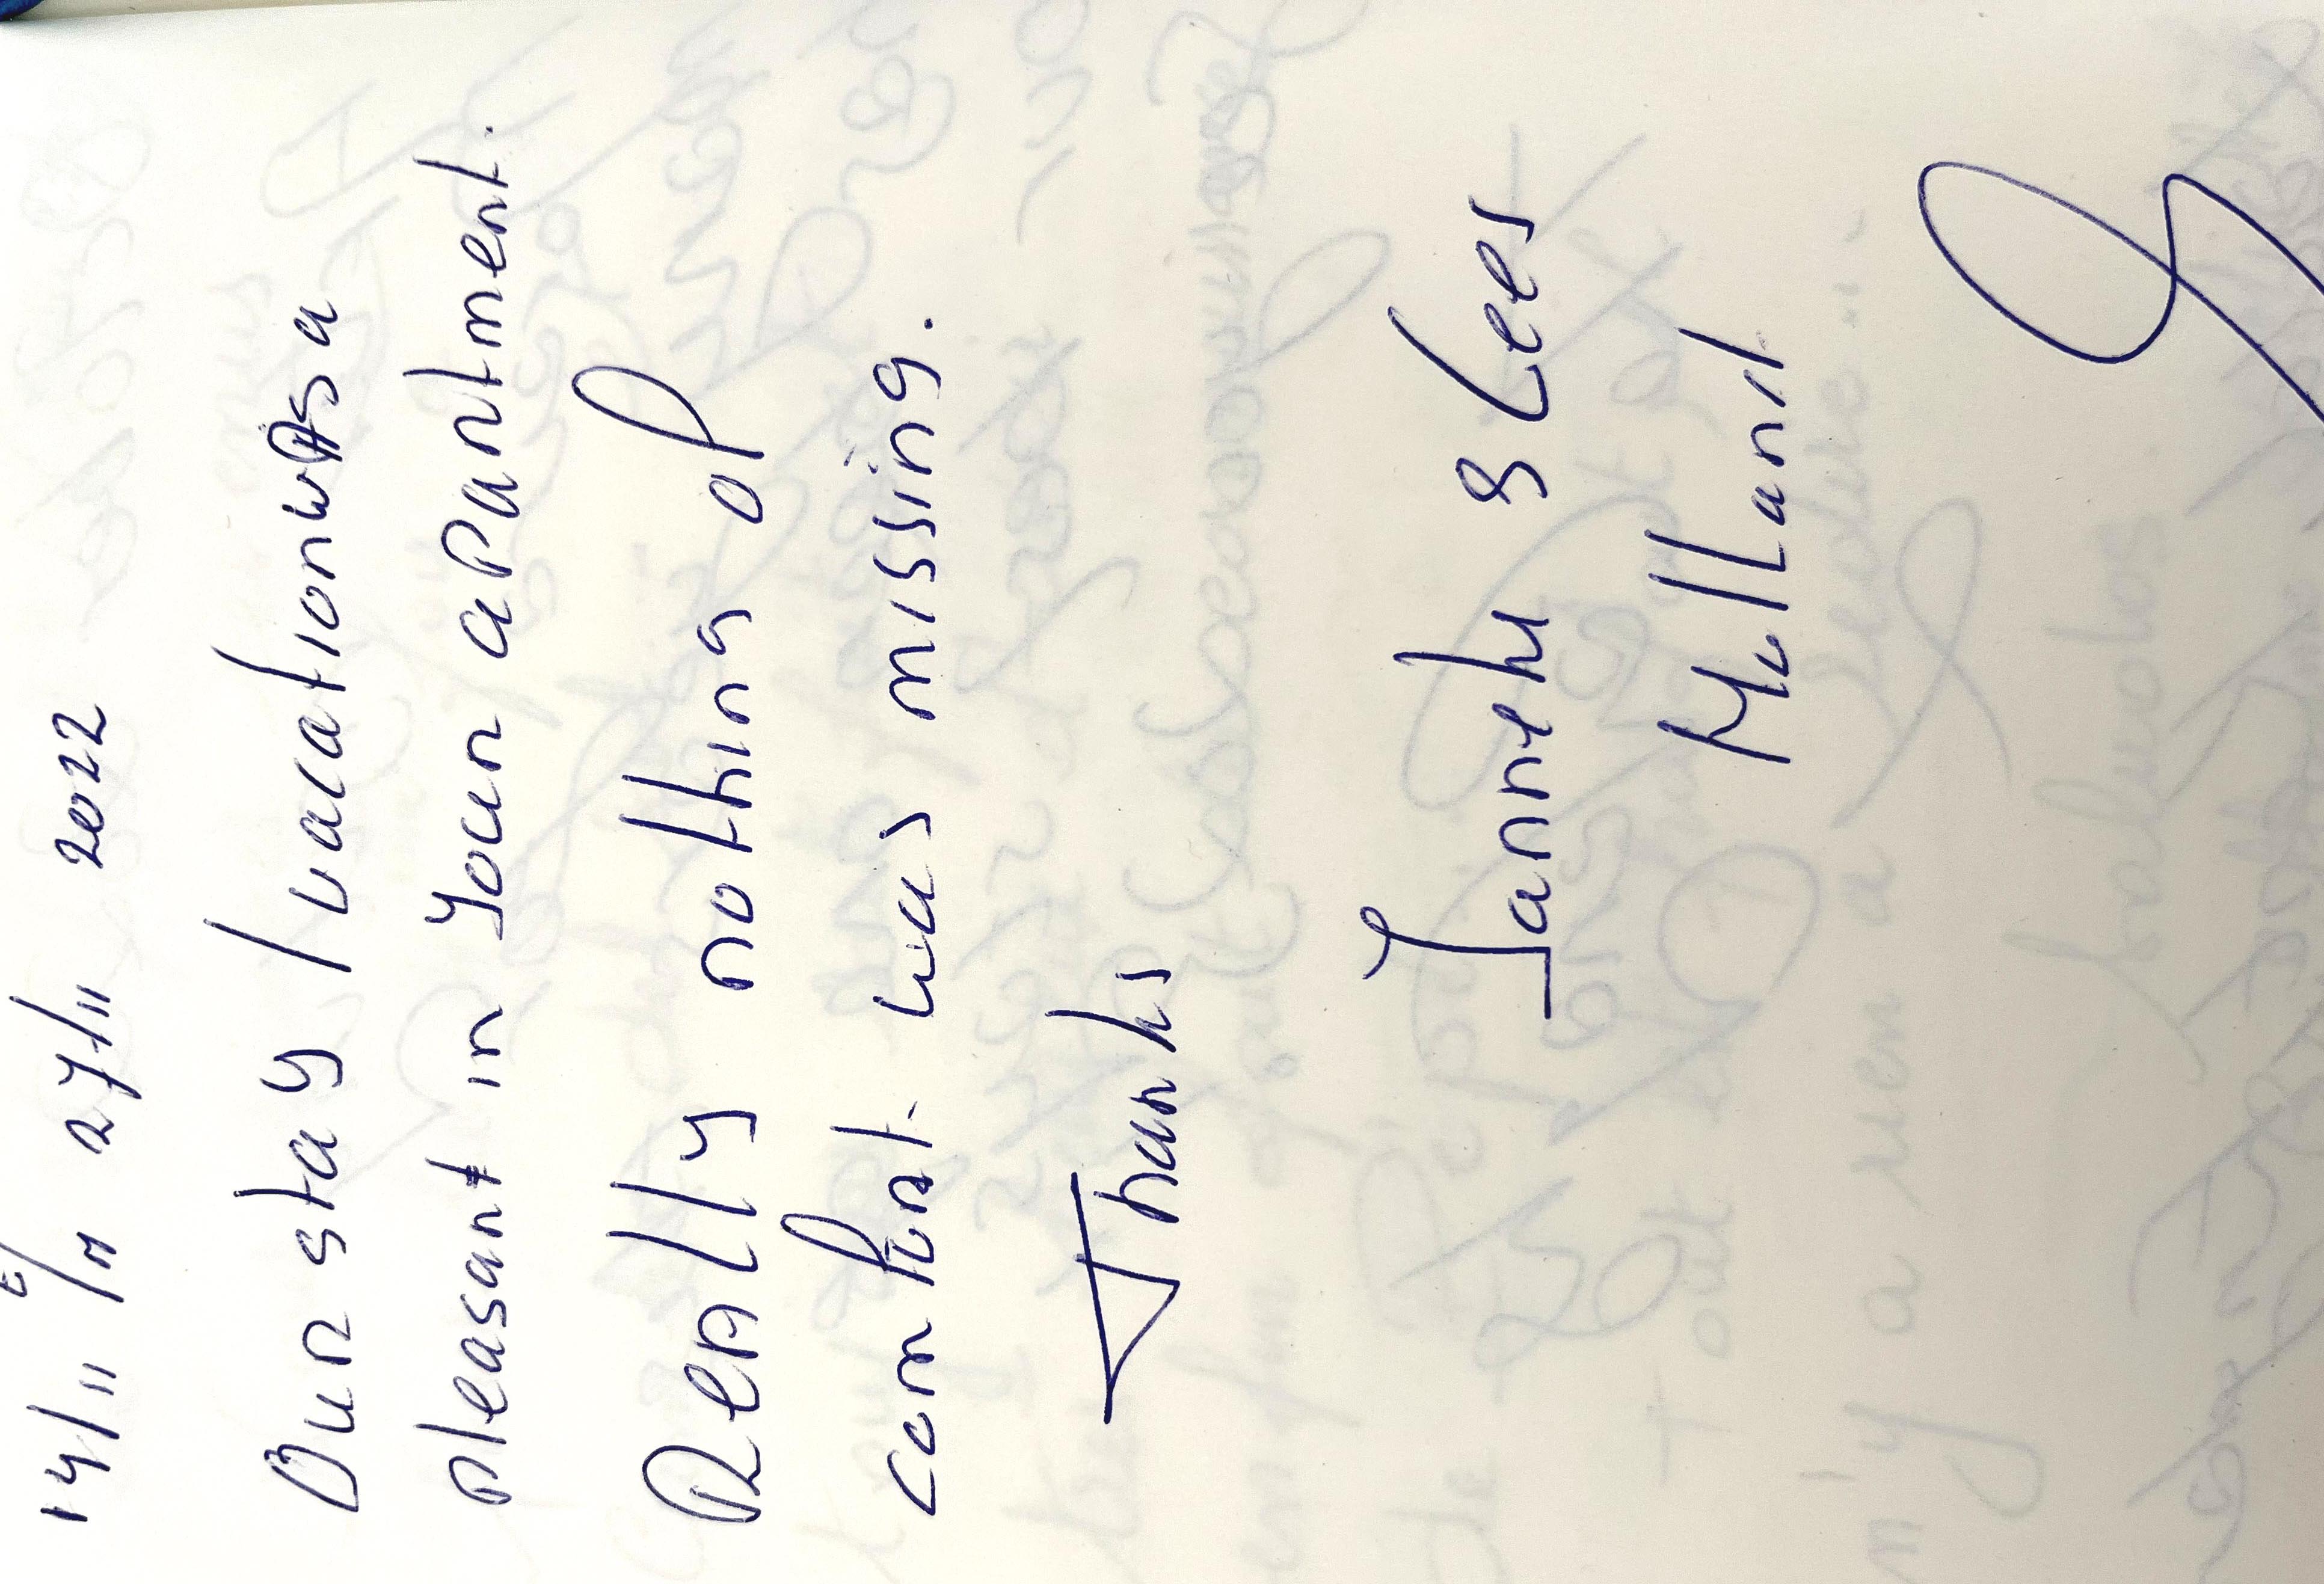 14/11 t/m 27/11 2022
Our stay / vacation was a
pleasant in your apartment.
Really nothing of
comfort was missing.
Thanks
Janneke & Cees